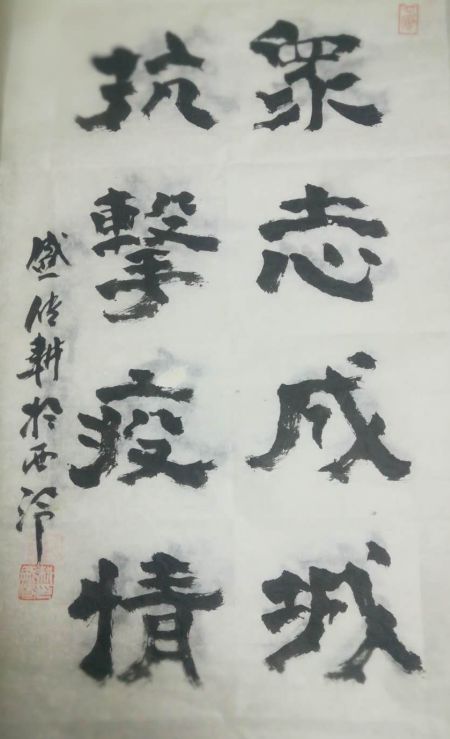 眾志成城
抗擊疫情
盛傳耕於西泠